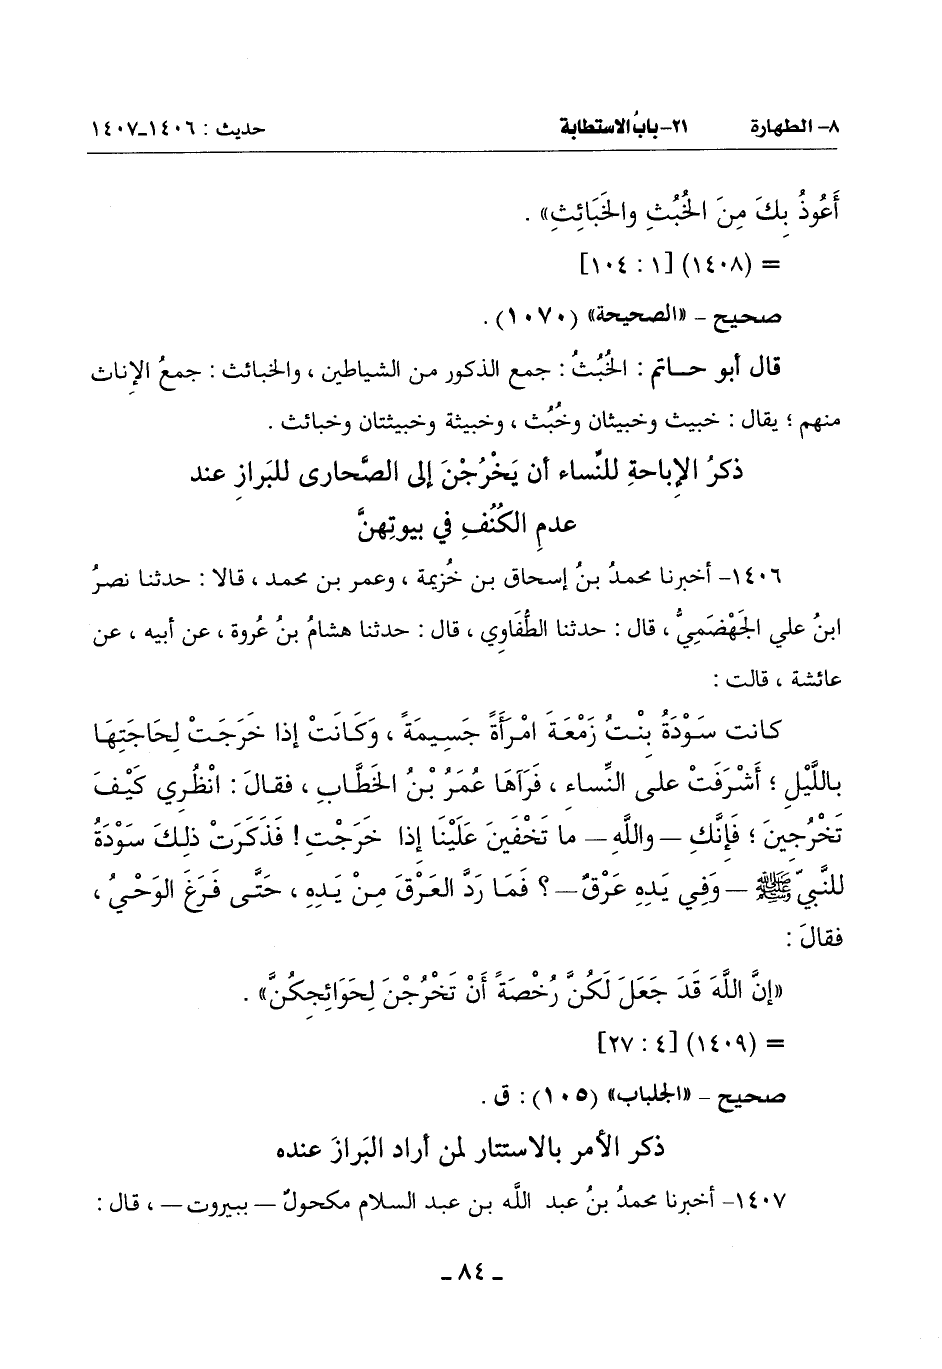 ٨- الطهارة ٢١-بابُ الاستطابة حديث : ١٤٠٦-١٤٠٧
أَعُوذُ بِكَ مِنَ الخُبُثِ والخَبَائِثِ» .
= (١٤٠٨) [١ : ١٠٤]
صحيح - «الصحيحة» (١٠٧٠) .
قال أبو حـاتم : الخُبُثُ : جمع الذكور من الشياطين ، والخبائث : جمعُ الإناث
منهم ؛ يقال : خبيث وخبيثان وخُبُث ، وخبيثة وخبيثتان وخبائث .
ذكرُ الإباحةِ للنِّساء أن يَخْرُجْنَ إلى الصَّحارى للبَرازِ عند
عدمِ الكُنُفِ في بيوتِهنَّ
١٤٠٦- أخبرنا محمدُ بنُ إسحاق بن خُزيمة ، وعمر بن محمد ، قالا : حدثنا نصرُ
ابنُ علي الجَهْضَمِيُّ ، قال : حدثنا الطُّفَاوِي ، قال : حدثنا هشامُ بنُ عُروة ، عن أبيه ، عن
عائشة ، قالت :
كانت سَوْدَةُ بِنْتُ زَمْعَةَ امْرَأَةً جَسِيمَةً ، وَكَانَتْ إذا خَرَجَتْ لحَاجَتِهَا
بالَّليْلِ ؛ أشْرَفَتْ على النِّساءِ ، فَرَآهَا عُمَرُ بْنُ الخَطَّابِ ، فقالَ : انْظُرِي كَيْفَ
تَخْرُجِينَ ؛ فإنَّكِ – واللَّهِ – ما تَخْفَينَ عَلَيْنَا إذا خَرَجْتِ! فَذَكَرَتْ ذلِكَ سَوْدَةُ
للنَّبِيِّ ﷺ – وَفِي يَدِهِ عَرْقٌ – ؟ فَمَا رَدَّ العَرْقَ مِنْ يَدِهِ ، حَتَّى فَرَغَ الوَحْيُ ،
فقالَ :
«إنَّ اللَّهَ قَدَ جَعَلَ لَكُنَّ رُخْصَةً أَنْ تَخْرُجْنَ لِحَوَائِجِكُنَّ» .
= (١٤٠٩) [٤ : ٢٧]
صحيح - «الجلباب» (١٠٥) : ق .
ذكر الأمر بالاستتار لمن أراد البَرازَ عنده
١٤٠٧- أخبرنا محمدُ بنُ عبد اللَّه بن عبد السلام مكحولٌ – ببيروت – ، قال :
- ٨٤ -